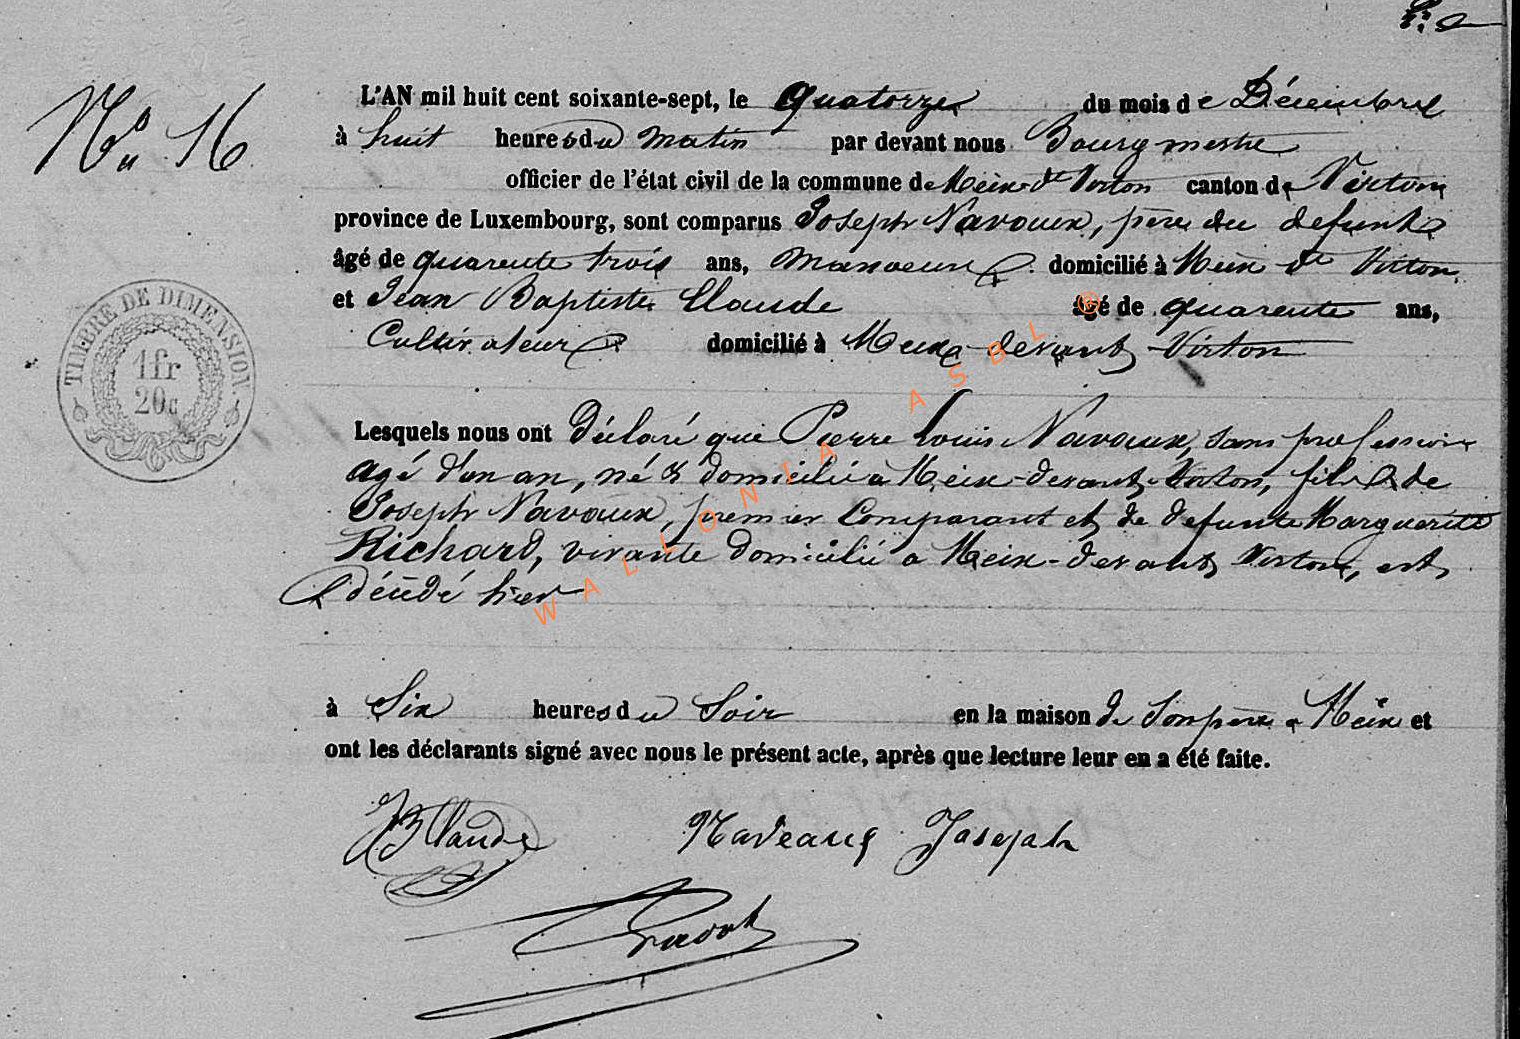 No 16
L'AN mil huit cent soixante-sept, le quatorze du mois de Décembre
à huit heures du matin par devant nous Bourgmestre
officier de l'état civil de la commune de Meix-dt Virton canton de Virton
province de Luxembourg, sont comparus Joseph Navaux, père du defunt
âgé de quarente trois ans, manoeuvre domicilié à Meix dt Virton
et Jean Baptiste Claude âgé de quarente ans,
Cultivateur domicilié à Meix devant Virton
TIMBRE DE DIMENSION
1fr
20c
Lesquels nous ont déclaré que Pierre Louis Navaux, sans profession
agé d'un an, né & domicilié à Meix-devant-Virton, fils de
Joseph Navaux, premier Comparant et de defunte Marguerite
Richard, vivante domicilié a Meix-devant Virton, est
décédé hier
à Six heures du Soir en la maison de Son père a Meix et
ont les déclarants signé avec nous le présent acte, après que lecture leur en a été faite.
JB Claude Naveaux Joseph
WALLONIA ASBL ©